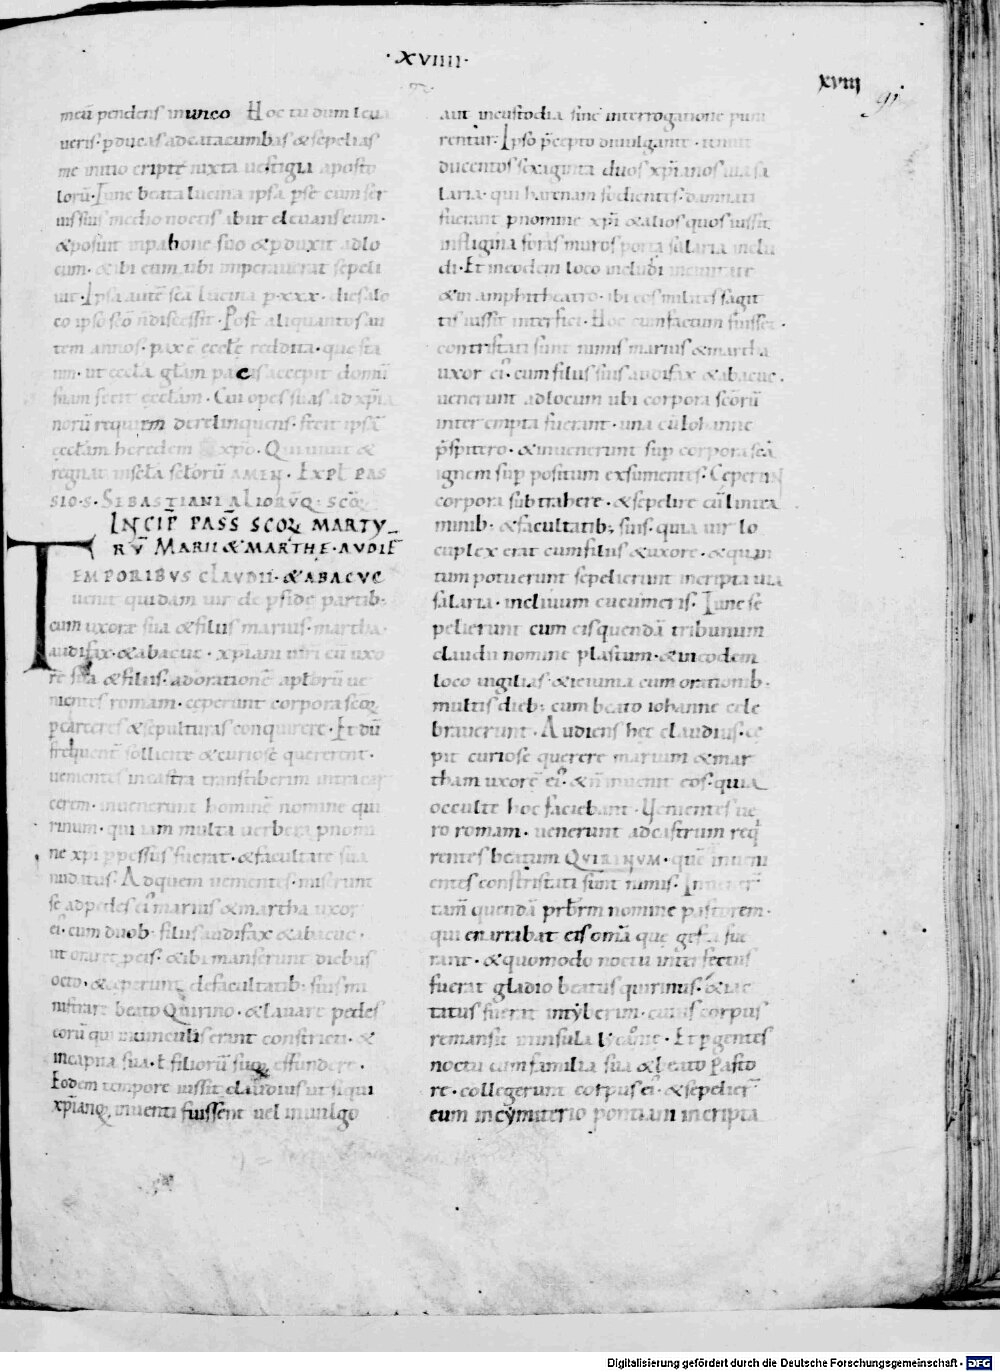 ·XVIIII·
xviij
91
meū pendens in unco Hoc tu dum leua
ueris · pducas ad catacumbas & sepelias
me initio cripte iuxta uestigia aposto
lorū · Tunc beata lucina ipsa pse cum ser
uis suis medio noctis abiit eleuans eum ·
& posuit in pabone suo & pduxit ad lo
cum · & ibi eum ubi imperauerat sepeli
uit · Ipsa autē scā lucina p · xxx · dies a lo
co ipso scō n discessit · Post aliquantos au
tem annos · pax ē eccłe reddita · que sta
tim · ut eccła głam pacis accepit domū
suam fecit ecclam · Cui opes suas ad xpīa
norū requiem derelinquens · fecit ipsā
eccłam heredem xpo · Qui uiuit &
regnat in secła secłorū AMEN · EXPŁ PAS
SIO · S · SEBASTIANI ALIORŪQ; SCŌꝜ
INCIP̄ PASS̄ SCOꝜ MARTY
RŪ MARII & MARTHE · AUDIF
TEMPORIBUS CLAUDII · & ABACUC
uenit quidam uir de pside partib·
cum uxore sua & filiis marius · martha ·
audifax · & abacuc · xpiani uiri cū uxo
re sua & filiis · ad orationē aptorū ue
nientes romam · ceperunt corpora scoꝝ
p carceres & sepulturas conquirere · Et dū
frequent̄ sollicite & curiose quererent ·
uenientes in castra transtiberim intra car
cerem · inuenerunt hominē nomine qui
rinum · qui iam multa uerbera p nomi
ne xpi ppessus fuerat · & facultate sua
nudatus · Ad quem uenientes · miserunt
se ad pedes ei' marius & martha uxor
ei' · cum duob· filiis audifax & abacuc ·
ut oraret p eis · & ibi manserunt diebus
octo · & ceperunt de facultatib· suis mi
nistrare beato Quirino · & lauare pedes
eorū qui in uinculis erant constricti · &
in capita sua · & filiorū suoꝝ effundere ·
Eodem tempore iussit claudius ut siqui
xpīanoꝝ inuenti fuissent uel in uulgo
aut in custodia sine interrogatione puni
rentur · Ipso p̄cepto diuulgante · tenuit
ducentos sexaginta duos xpīanos uia sa
laria · qui harenam fodientes · damnati
fuerant p nomine xpi & alios quos iussit
in figlina foras muros porta salaria inclu
di · Et in eodem loco includi in ciuitate
& in amphitheatro · ibi eos milites sagit
tis iussit interfici · Hoc cum factum fuisset ·
contristati sunt nimis marius & martha
uxor ei' · cum filiis suis audifax & abacuc ·
uenerunt ad locum ubi corpora scorū
interempta fuerant · una cū Iohanne
p̄sbitero · & inuenerunt sup corpora scā
ignem sup positum exsumentes · Ceperunt
corpora subtrahere · & sepelire cū lintea
minib· & facultatib; suis · quia uir lo
cuplex erat cum filiis & uxore · & quan
tum potuerunt sepelierunt in cripta uia
salaria · in cliuium cucumeris · Tunc se
pelierunt cum eis quendā tribunum
claudii nomine plastum · & in eodem
loco uigilias · & ieiunia cum orationib·
multis dieb· cum beato iohanne cele
brauerunt · Audiens hec claudius · ce
pit curiose querere marium & mar
tham uxorē ei' · & n̄ inuenit eos · quia
occulte hoc faciebant · Uenientes ue
ro romam · uenerunt ad castrum req
rentes beatum QUIRINUM · quē inueni
entes constristati sunt nimis · Inuener̄
tam̄ quendā prb̄rm nomine pastorem ·
qui enarrabat eis om̄a que gesta fue
rant · & quomodo noctu interfectus
fuerat gladio beatus quirinus · & iac
titus fuerat in tyberim · cuius corpus
remansit in insula lycaonie · Et pgentes
noctu cum familia sua & beato Pasto
re · collegerunt corpus ei' · & sepelier̄
eum in cymiterio pontiani in cripta
Digitalisierung gefördert durch die Deutsche Forschungsgemeinschaft - DFG